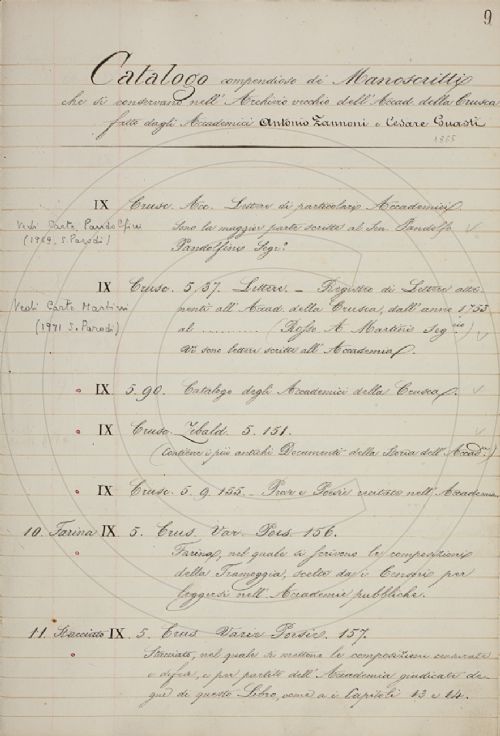 9
Catalogo compendioso de' Manoscritti
che si conservano nell'Archivio vecchio dell'Accad. della Crusca
fatto dagli Accademici Antonio Zannoni e Cesare Guasti
IX Crusc. Acc. Lettere di particolari Accademici.
Vedi Carte Pandolfini
Sono la maggior parte scritte al Sen. Pandolfo
(1969, S. Parodi)
Pandolfini Segr.º
IX Crusc. 5, 37. Lettere. – Registro di Lettere atte-
Vedi Carte Martini
nenti all'Accad. della Crusca, dall'anno 1753
(1971 S. Parodi)
al .......... (Rosso A. Martini Seg.rio)
Vi sono lettere scritte all'Accademia.
IX 5. 90. Catalogo degli Accademici della Crusca.
IX Crusc. Zibald. 5. 151.
(Contiene i più antichi Documenti della Storia dell'Accad.)
IX Crusc. 5. 9. 155. – Prose e Poesie recitate nell'Accademia
10. Farina IX 5. Crus. Var. Poes. 156.
Farina, nel quale si scrivono le composizioni
della Tramoggia, scelte da i Censori per
leggersi nell'Accademie pubbliche.
11. Stacciato IX. 5. Crus. Varie Poesie. 157.
Stacciato, nel quale si mettono le composizioni censurate
e difese, e per partito dell'Accademia giudicate de-
gne di questo Libro, come a i Capitoli 13 e 14.